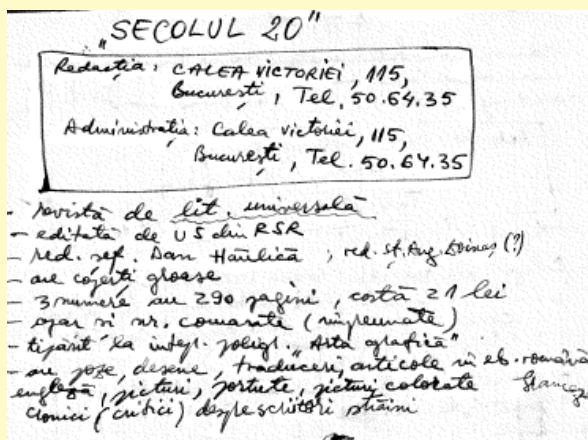 „SECOLUL 20"
Redacția: CALEA VICTORIEI, 115,
București, Tel. 50.64.35
Administrația: Calea victoriei, 115,
București, Tel. 50.64.35
- revistă de lit. universală
- editată de US din RSR
- red. șef. Dan Hăulică, red. Șt. Aug. Doinaș (?)
- are coperți groase
- 3 numere au 290 pagini, costă 21 lei
- apar și nr. comasate (împreunate)
- tipărit la întepr. poligr. „Arta grafică"
- au poze, desene, traduceri, articole în lb. română
engleză, picturi, portrete, picturi colorate
cronici (critici) despre scriitori străini